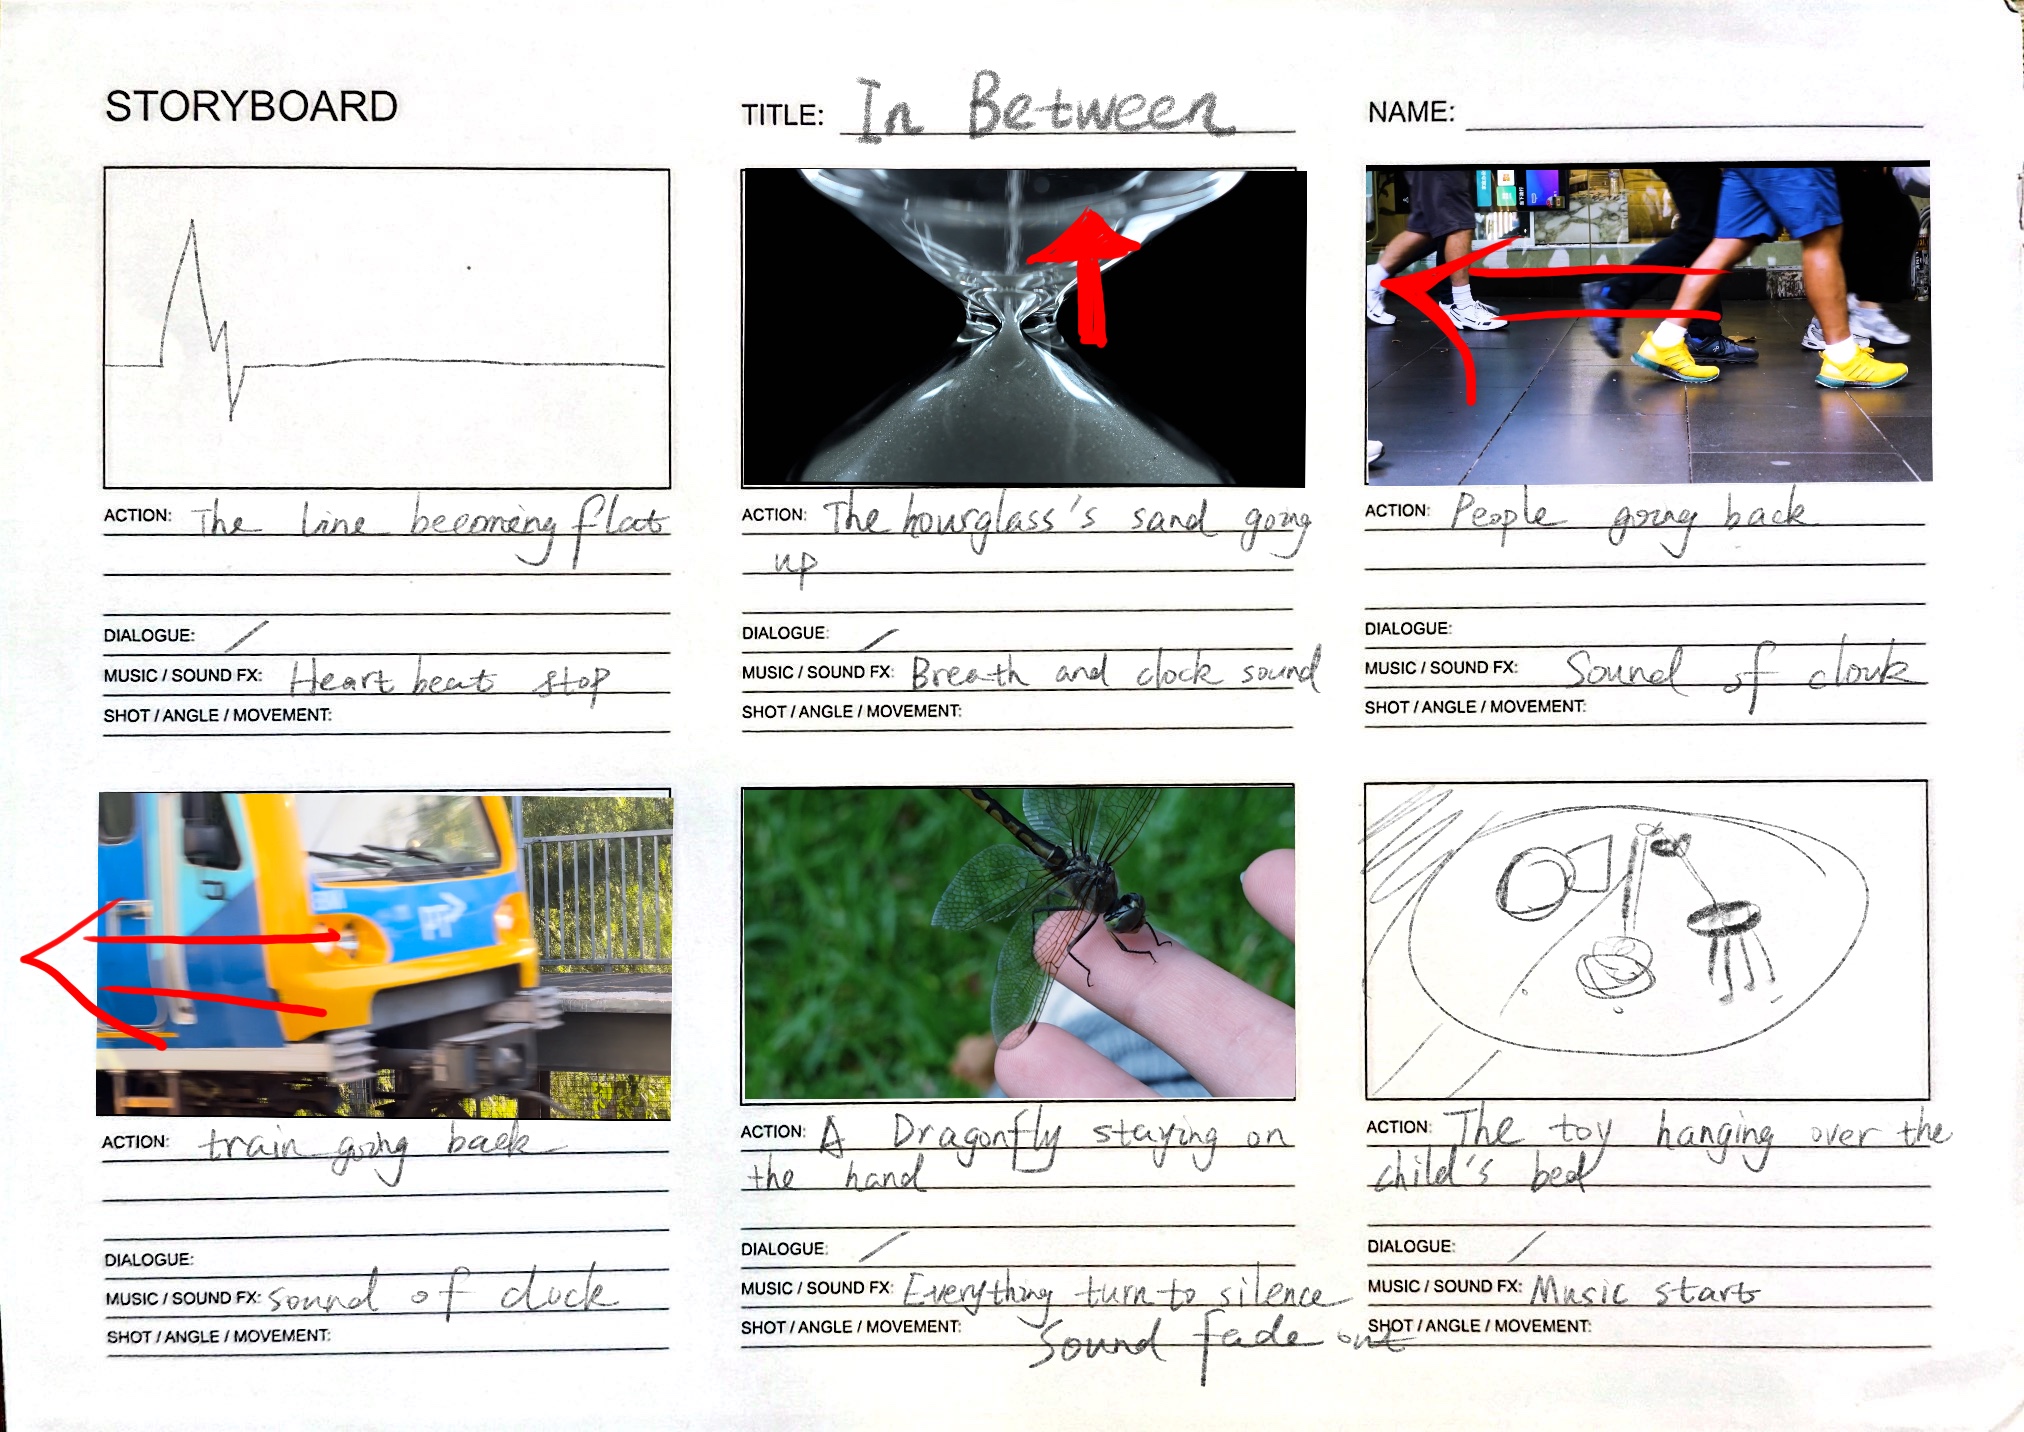 STORYBOARD
TITLE: In Between
NAME:
ACTION: The line becoming flat
DIALOGUE: /
MUSIC / SOUND FX: Heart beat stop
SHOT / ANGLE / MOVEMENT:
ACTION: The hourglass's sand going
up
DIALOGUE: /
MUSIC / SOUND FX: Breath and clock sound
SHOT / ANGLE / MOVEMENT:
ACTION: People going back
DIALOGUE:
MUSIC / SOUND FX: Sound of clouk
SHOT / ANGLE / MOVEMENT:
ACTION: train going back
DIALOGUE:
MUSIC / SOUND FX: sound of clock
SHOT / ANGLE / MOVEMENT:
ACTION: A Dragonfly staying on
the hand
DIALOGUE: /
MUSIC / SOUND FX: Everything turn to silence
SHOT / ANGLE / MOVEMENT: Sound fade out
ACTION: The toy hanging over the
child's bed
DIALOGUE: /
MUSIC / SOUND FX: Music start
SHOT / ANGLE / MOVEMENT: